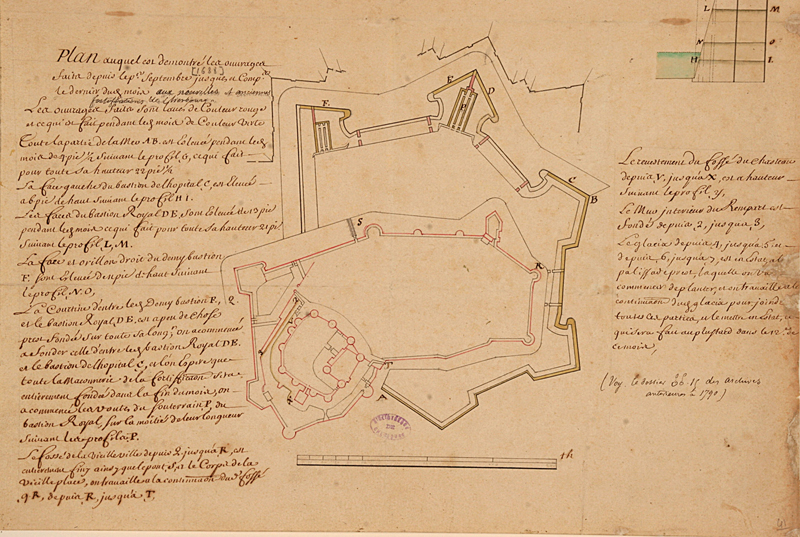 Plan auquel est demontré les ouvrages
faits depuis le pr. Septembre [1688] jusques et Comp.
le dernier du mois aux nouvelles et anciennes
fortifications de
Les ouvrages faits sont lavés de Couleur rouge
et ce qui est fait pendant le mois de Couleur Verte
Toute la partie de la AB. est Elevée pendant le
mois de pie ½ Suivant le profil G, ce qui fait
pour toute sa hauteur 22 pie ½
La face gauche du bastion de l'hopital C, est Elevée
a pie de haut Suivant le profil H I.
Les faces du bastion Royal DE, sont Elevée de 13 pie
pendant le mois ce qui fait pour toute sa hauteur 21 pie
Suivant le profil L, M.
La face et orillon droit du demy bastion
F, sont Elevée de pie de haut Suivant
le profil, N. O,
La Courtine d'entre le Demy bastion F,
et le bastion Royal, DE, est a peu de chose
pres fondée sur toute sa long; on a commencé
a fonder celle d'entre le bastion Royal DE.
et le bastion de l'hopital C, et l'on Espere que
toute la Maçonnerie de la fortification sera
entierement fondée dans la fin du mois, on
a commencé les vouts, du souterrain P, du
bastion Royal, sur la moitié de leur longueur
Suivant les profils P.
Le fossé de la Vieille ville depuis Q jusqu'a R, est
entierement finy ainsy que le pont, S, et le Corps de la
Vieille place, on travaille a la continuation du d. fossé
QR, depuis R, jusqu'a T.
Le revestement du fossé du Chasteau
depuis V, jusqua X, est a hauteur
suivant le profil, y,
Le Mur interieur du Rempart est
fondés depuis 2, jusqua 3,
Le glacis depuis 4, jusqua 5 et
depuis, 6, jusqua 7, est en Estat, et la
palissade prest, laquelle on va
commencer de planter, et on travaille a la
continuation du glacis pour joindre
toutes les parties, et le mettre en Estat, ce
qui sera fait au plustard dans le 12e. de
ce mois,
(Voy. le dossier 15 des archives
antérieures à 1790)
L M
N O
H I
F E D P
C
B
S
R
Q
V
X
T
A
th